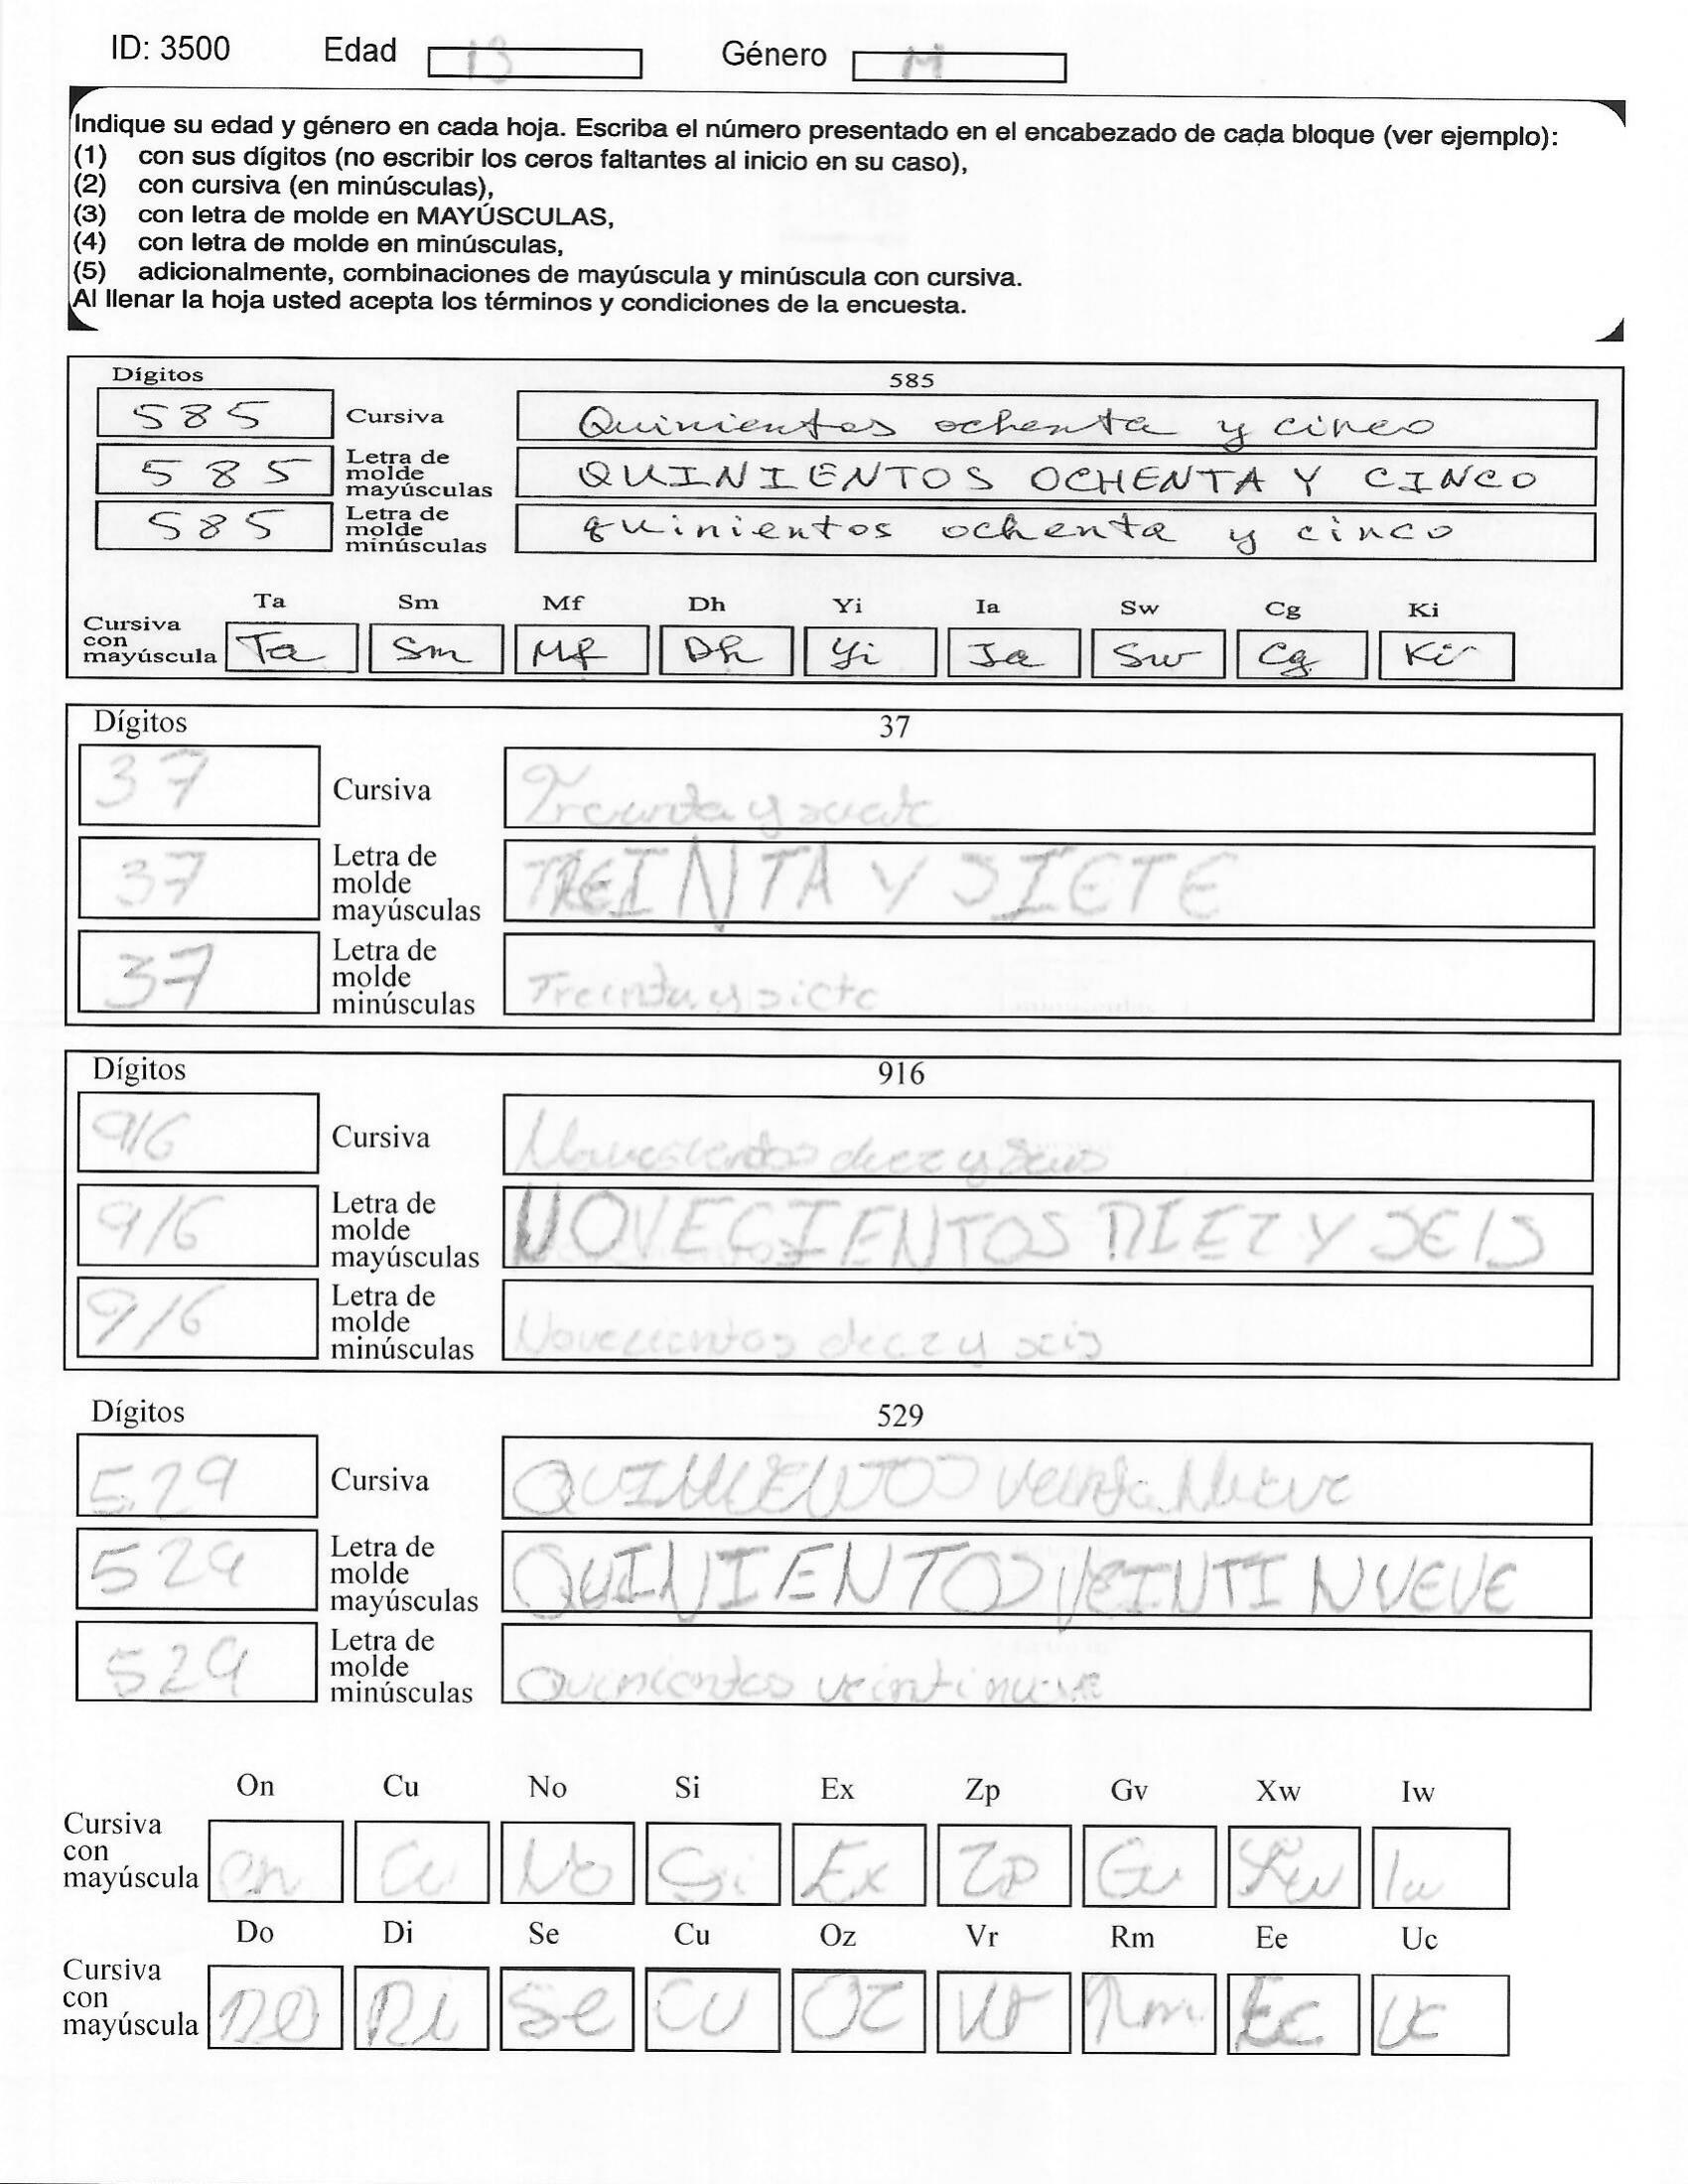 ID: 3500 Edad 13 Género M
Indique su edad y género en cada hoja. Escriba el número presentado en el encabezado de cada bloque (ver ejemplo):
(1) con sus dígitos (no escribir los ceros faltantes al inicio en su caso),
(2) con cursiva (en minúsculas),
(3) con letra de molde en MAYÚSCULAS,
(4) con letra de molde en minúsculas,
(5) adicionalmente, combinaciones de mayúscula y minúscula con cursiva.
Al llenar la hoja usted acepta los términos y condiciones de la encuesta.
Dígitos 585
585 Cursiva Quinientos ochenta y cinco
585 Letra de molde mayúsculas QUINIENTOS OCHENTA Y CINCO
585 Letra de molde minúsculas quinientos ochenta y cinco
Ta Sm Mf Dh Yi Ia Sw Cg Ki
Cursiva con mayúscula Ta Sm Mf Dh Yi Ia Sw Cg Ki
Dígitos 37
37 Cursiva Treinta y siete
37 Letra de molde mayúsculas TREINTA Y SIETE
37 Letra de molde minúsculas Treinta y siete
Dígitos 916
916 Cursiva Novecientos diez y seis
916 Letra de molde mayúsculas NOVECIENTOS DIEZ Y SEIS
916 Letra de molde minúsculas Novecientos diez y seis
Dígitos 529
529 Cursiva QUINIENTOS Nueve
529 Letra de molde mayúsculas QUINIENTOS VEINTI NUEVE
529 Letra de molde minúsculas Quinientos veinti nueve
On Cu No Si Ex Zp Gv Xw Iw
Cursiva con mayúscula On Cu No Si Ex Zp Gv Xw Iw
Do Di Se Cu Oz Vr Rm Ee Uc
Cursiva con mayúscula DO Di Se Cu Oz Vr Rm Ee Uc